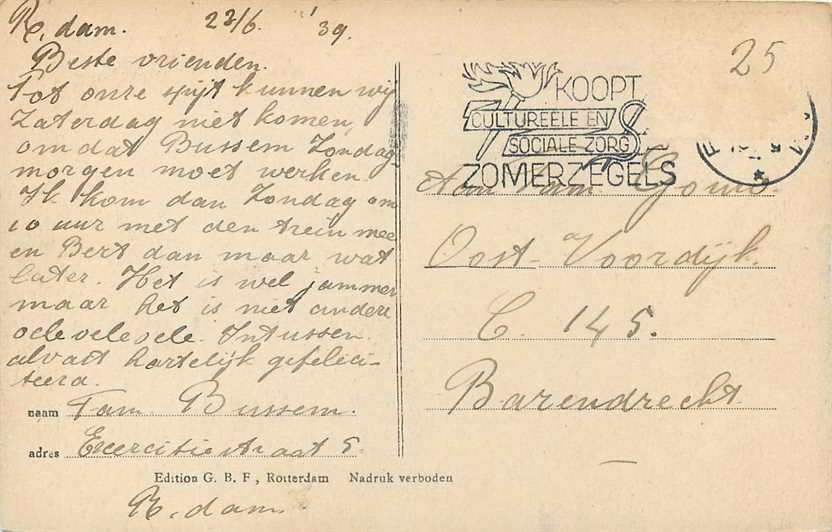 R.dam. 22/6. '39.
Beste vrienden.
Tot onze spijt kunnen wij
Zaterdag niet komen,
om dat Bussem Zondag
morgen moet werken.
Ik kom dan Zondag om
10 uur met den trein mee
en Bert dan maar wat
later. Het is wel jammer
maar het is niet anders
Intussen
alvast hartelijk gefelici-
teerd.
naam Fam. Bussem.
adres Exercitiestraat 5.
Edition G. B. F, Rotterdam Nadruk verboden
R.dam.
25
KOOPT
CULTUREELE EN
SOCIALE ZORG
ZOMERZEGELS
Aan Fam.
Oost-Voordijk.
C. 145.
Barendrecht